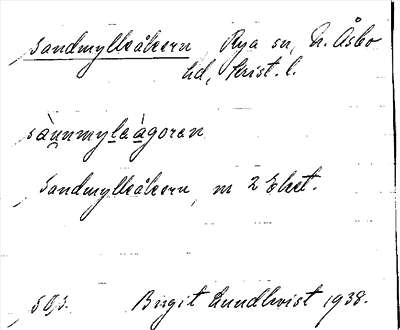 Sandmylleåkern, Rya sn, N. Åsbo
hd, Krist. l.
sànnmyleàgoren
Sandmylleåkern, m 2 Ekst.
Birgit Lundkvist 1938.